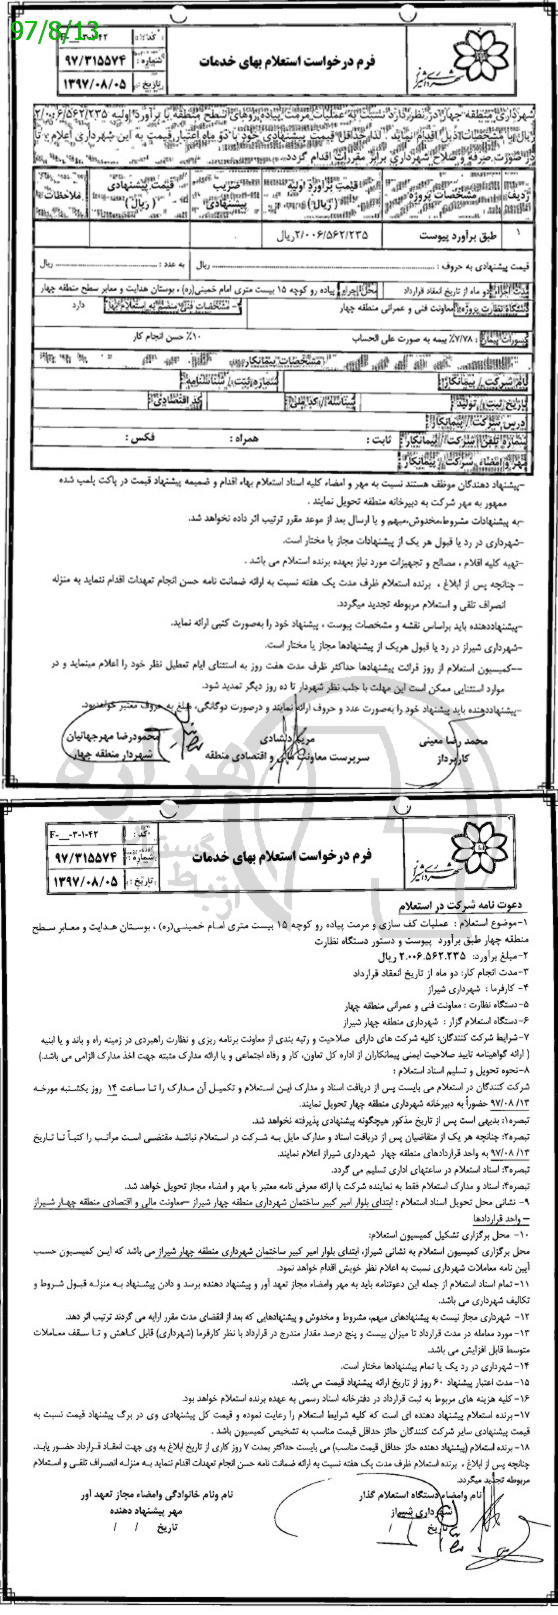 97/8/13
فرم درخواست استعلام بهای خدمات
کد : F-__-۳-۱-۴۲
شماره : ۹۷/۳۱۵۵۷۴
تاریخ : ۱۳۹۷/۰۸/۰۵
شهرداری شیراز
شهرداری منطقه چهار در نظر دارد نسبت به عملیات مرمت پیاده روهای سطح منطقه با برآورد اولیه ۲/۰۰۶/۵۶۲/۲۳۵
ریال با مشخصات ذیل اقدام نماید . لذا حداقل قیمت پیشنهادی خود با دو ماه اعتبار قیمت به این شهرداری اعلام تا
در صورت صرفه و صلاح شهرداری برابر مقررات اقدام گردد.
ردیف مشخصات پروژه قیمت برآورد اولیه (ریال) ضریب پیشنهادی قیمت پیشنهادی (ریال) ملاحظات
۱ طبق برآورد پیوست ۲/۰۰۶/۵۶۲/۲۳۵ریال
قیمت پیشنهادی به حروف : ریال به عدد : ریال
دو ماه از تاریخ انعقاد قرارداد محل اجرا: پیاده رو کوچه ۱۵ بیست متری امام خمینی(ره) ، بوستان هدایت و معابر سطح منطقه چهار
دستگاه نظارت پروژه: معاونت فنی و عمرانی منطقه چهار مشخصات فنی منضم به استعلام بها: دارد
کسورات پیمان: ۷/۷۸٪ بیمه به صورت علی الحساب ۱۰٪ حسن انجام کار
مشخصات پیمانکار
نام شرکت / پیمانکار: شماره ثبت / شناسنامه:
تاریخ ثبت / تولد: شناسه / کد ملی: کد اقتصادی:
آدرس شرکت / پیمانکار:
شماره تلفن شرکت / پیمانکار: ثابت : همراه : فکس :
مهر و امضاء شرکت / پیمانکار:
-پیشنهاد دهندگان موظف هستند نسبت به مهر و امضاء کلیه اسناد استعلام بهاء اقدام و ضمیمه پیشنهاد قیمت در پاکت پلمب شده
ممهور به مهر شرکت به دبیرخانه منطقه تحویل نمایند .
-به پیشنهادات مشروط،مخدوش،مبهم و یا ارسال بعد از موعد مقرر ترتیب اثر داده نخواهد شد.
-شهرداری در رد یا قبول هر یک از پیشنهادات مجاز یا مختار است.
-تهیه کلیه اقلام ، مصالح و تجهیزات مورد نیاز بعهده برنده استعلام می باشد .
- چنانچه پس از ابلاغ ، برنده استعلام ظرف مدت یک هفته نسبت به ارائه ضمانت نامه حسن انجام تعهدات اقدام ننماید به منزله
انصراف تلقی و استعلام مربوطه تجدید میگردد.
-پیشنهاددهنده باید براساس نقشه و مشخصات پیوست ، پیشنهاد خود را به‌صورت کتبی ارائه نماید.
-شهرداری شیراز در رد یا قبول هریک از پیشنهادها مجاز یا مختار است.
--کمیسیون استعلام از روز قرائت پیشنهادها حداکثر ظرف مدت هفت روز به استثنای ایام تعطیل نظر خود را اعلام مینماید و در
موارد استثنایی ممکن است این مهلت با جلب نظر شهردار تا ده روز دیگر تمدید شود.
-پیشنهاددهنده باید پیشنهاد خود را به‌صورت عدد و حروف ارائه نمایند و درصورت دوگانگی، مبلغ به حروف معتبر خواهدبود.
محمد رضا معینی مریم دلشادی محمودرضا مهرجهانیان
کارپرداز سرپرست معاونت مالی و اقتصادی منطقه شهردار منطقه چهار
فرم درخواست استعلام بهای خدمات
کد : F-__-۳-۱-۴۲
شماره : ۹۷/۳۱۵۵۷۴
تاریخ : ۱۳۹۷/۰۸/۰۵
شهرداری شیراز
دعوت نامه شرکت در استعلام
۱-موضوع استعلام : عملیات کف سازی و مرمت پیاده رو کوچه ۱۵ بیست متری امام خمینی(ره) ، بوستان هدایت و معابر سطح
منطقه چهار طبق برآورد پیوست و دستور دستگاه نظارت
۲-مبلغ برآورد: ۲.۰۰۶.۵۶۲.۲۳۵ ریال
۳-مدت انجام کار: دو ماه از تاریخ انعقاد قرارداد
۴- کارفرما : شهرداری شیراز
۵-دستگاه نظارت : معاونت فنی و عمرانی منطقه چهار
۶-دستگاه استعلام گزار : شهرداری منطقه چهار شیراز
۷-شرایط شرکت کنندگان: کلیه شرکت های دارای صلاحیت و رتبه بندی از معاونت برنامه ریزی و نظارت راهبردی در زمینه راه و باند و یا ابنیه
( ارائه گواهینامه تایید صلاحیت ایمنی پیمانکاران از اداره کل تعاون، کار و رفاه اجتماعی و یا ارائه مدارک مثبته جهت اخذ مدارک الزامی می باشد.)
۸-نحوه تحویل و تسلیم اسناد استعلام :
شرکت کنندگان در استعلام می بایست پس از دریافت اسناد و مدارک این استعلام و تکمیل آن مدارک را تا ساعت ۱۴ روز یکشنبه مورخه
۹۷/۰۸/۱۳ حضوراً به دبیرخانه شهرداری منطقه چهار تحویل نمایند.
تبصره۱: بدیهی است پس از تاریخ مذکور هیچگونه پیشنهادی پذیرفته نخواهد شد.
تبصره۲: چنانچه هر یک از متقاضیان پس از دریافت اسناد و مدارک مایل به شرکت در استعلام نباشد مقتضی است مراتب را کتباً تا تاریخ
۹۷/۰۸/۱۳ به واحد قراردادهای منطقه چهار شهرداری شیراز اعلام نمایند.
تبصره۳: اسناد استعلام در ساعتهای اداری تسلیم می گردد.
تبصره۴: اسناد و مدارک استعلام فقط به نماینده شرکت با ارائه معرفی نامه معتبر با مهر و امضاء مجاز تحویل خواهد شد.
۹- نشانی محل تحویل اسناد استعلام : ابتدای بلوار امیر کبیر ساختمان شهرداری منطقه چهار شیراز –معاونت مالی و اقتصادی منطقه چهار شیراز
– واحد قراردادها
۱۰- محل برگزاری تشکیل کمیسیون استعلام:
محل برگزاری کمیسیون استعلام به نشانی شیراز، ابتدای بلوار امیر کبیر ساختمان شهرداری منطقه چهار شیراز می باشد که این کمیسیون حسب
آیین نامه معاملات شهرداری نسبت به اعلام نظر خویش اقدام خواهد نمود.
۱۱-تمام اسناد استعلام از جمله این دعوتنامه باید به مهر وامضاء مجاز تعهد آور و پیشنهاد دهنده برسد و دادن پیشنهاد به منزله قبول شروط و
تکالیف شهرداری می باشد.
۱۲- شهرداری مجاز نیست به پیشنهادهای مبهم، مشروط و مخدوش و پیشنهادهایی که بعد از انقضای مدت مقرر ارایه می گردند ترتیب اثر دهد.
۱۳-مورد معامله در مدت قرارداد تا میزان بیست و پنج درصد مقدار مندرج در قرارداد با نظر کارفرما (شهرداری) قابل کاهش و تا سقف معاملات
متوسط قابل افزایش می باشد.
۱۴-شهرداری در رد یک یا تمام پیشنهادها مختار است.
۱۵-مدت اعتبار پیشنهاد ۶۰ روز از تاریخ ارائه پیشنهاد قیمت می باشد.
۱۶-کلیه هزینه های مربوط به ثبت قرارداد در دفترخانه اسناد رسمی به عهده برنده استعلام خواهد بود.
۱۷-برنده استعلام پیشنهاد دهنده ای است که کلیه شرایط استعلام را رعایت نموده و قیمت کل پیشنهادی وی در برگ پیشنهاد قیمت نسبت به
قیمت پیشنهادی سایر شرکت کنندگان حائز حداقل قیمت مناسب به تشخیص کمیسیون باشد .
۱۸-برنده استعلام (پیشنهاد دهنده حائز حداقل قیمت مناسب) می بایست حداکثر بمدت ۷ روز کاری از تاریخ ابلاغ به وی جهت انعقاد قرارداد حضور یابد.
چنانچه پس از ابلاغ ، برنده استعلام ظرف مدت یک هفته نسبت به ارائه ضمانت نامه حسن انجام تعهدات اقدام ننماید به منزله انصراف تلقی و استعلام
مربوطه تجدید میگردد.
نام وامضاء دستگاه استعلام گذار نام ونام خانوادگی وامضاء مجاز تعهد آور
شهرداری شیراز مهر پیشنهاد دهنده
تاریخ / / تاریخ / /